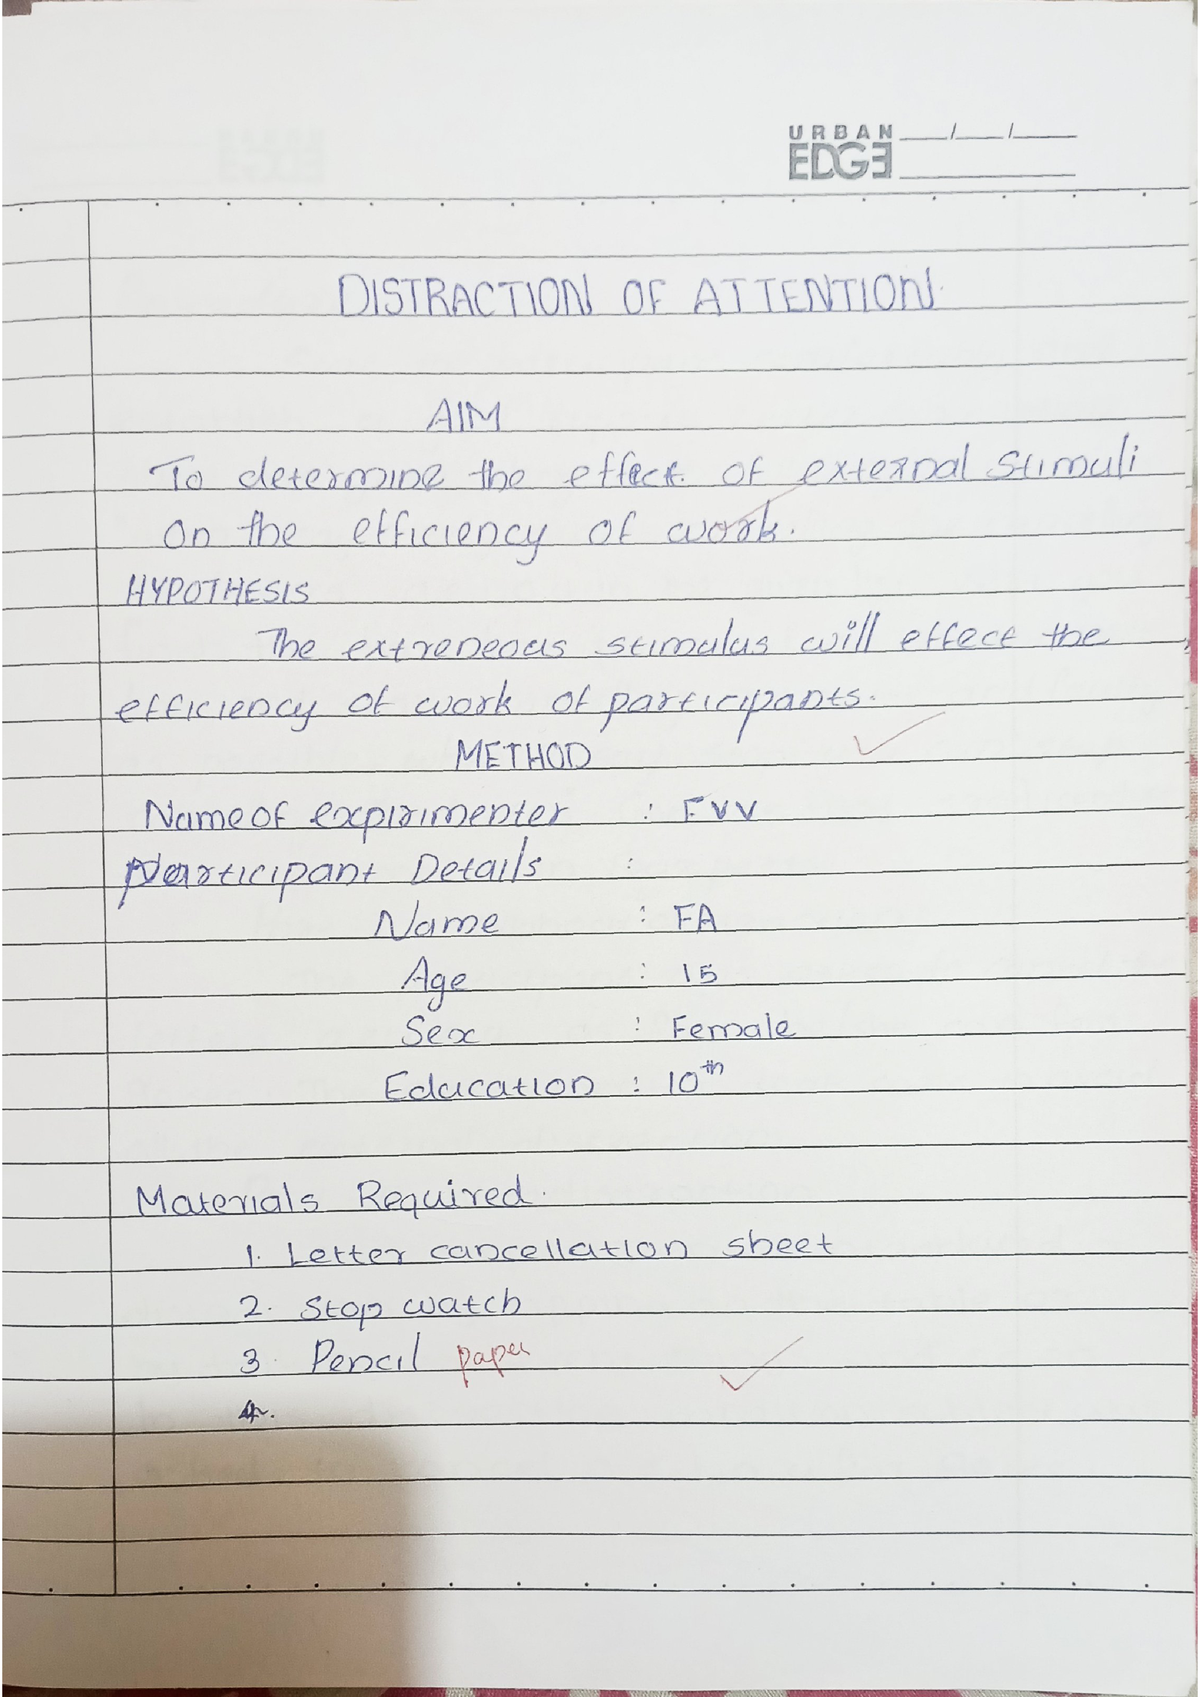 URBAN
EDGE
DISTRACTION OF ATTENTION.
AIM
To determine the effect. of external stimuli
on the efficiency of work.
HYPOTHESIS
The extreneous stimulus will effect the
efficiency of work of participants.
METHOD
Name of expirimenter : FVV
Participant Details :
Name : FA
Age : 15
Sex : Female
Education : 10th
Materials Required.
1. Letter cancellation sheet
2. Stop watch
3. Pencil paper
4.